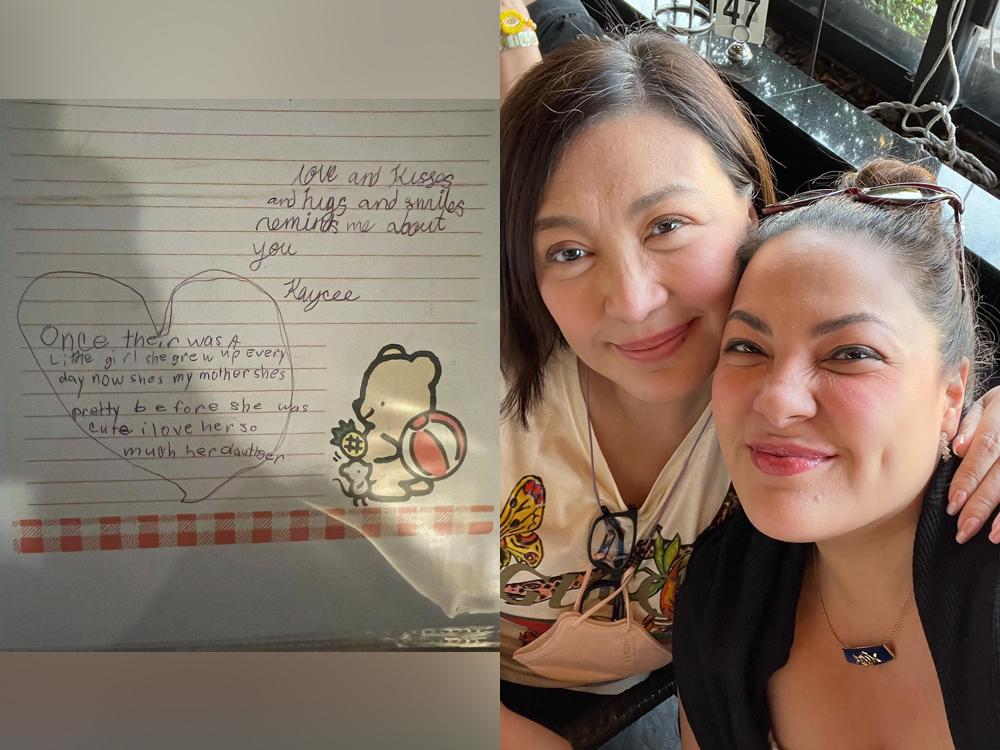 love and kisses
and hugs and smiles
reminds me about
you
Kaycee
Once their was A
Little girl she grew up Every
day now shes my mother shes
pretty before she was
cute i love her so
much her daugther
47